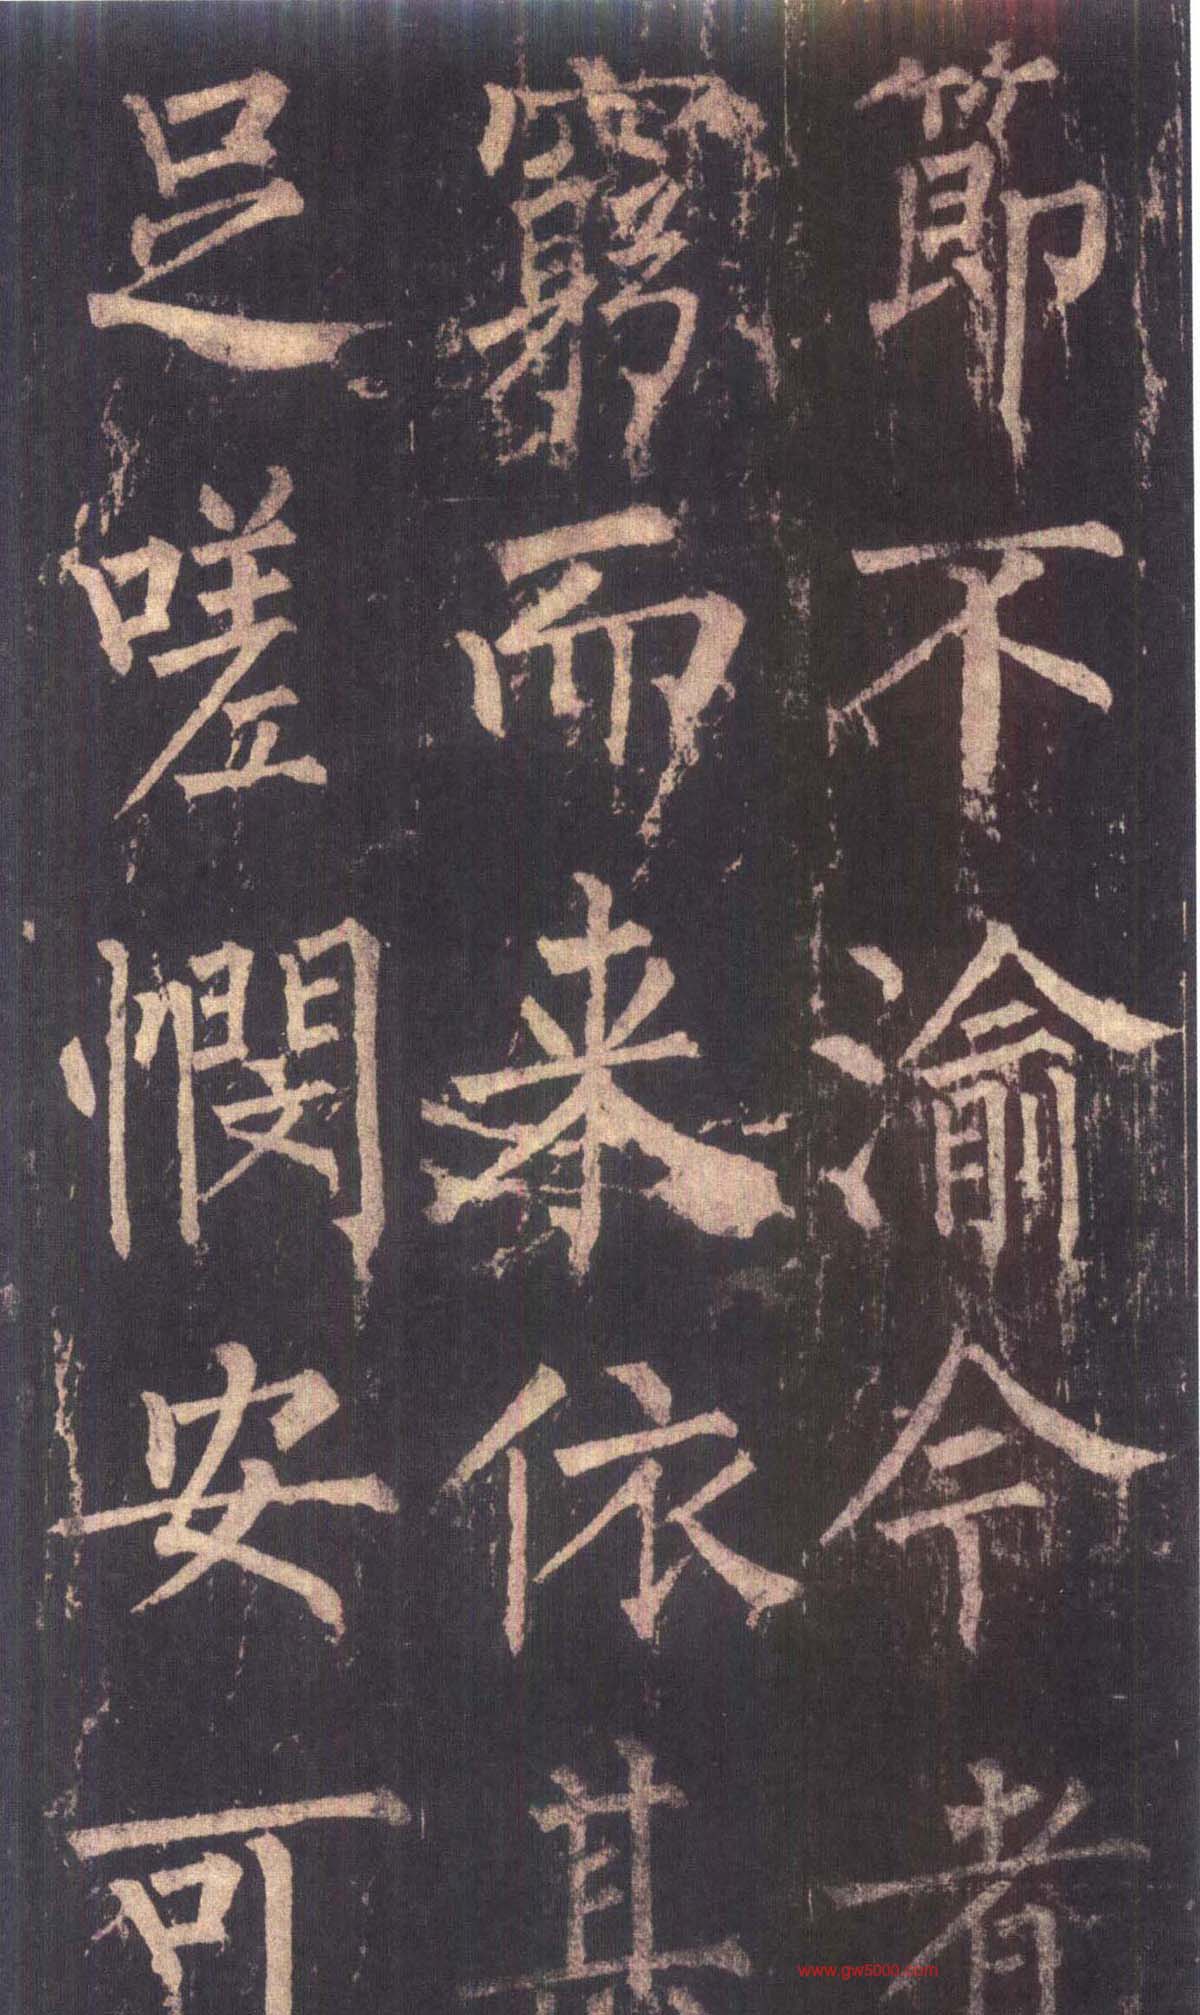 節不渝今者
窮而来依其
足嗟憫安可
www.gw5000.com